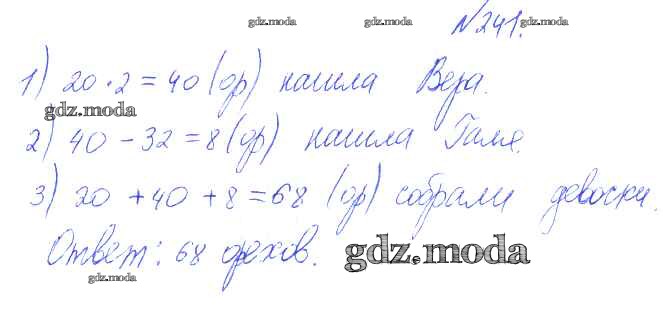 gdz.moda gdz.moda gdz.moda №241.
1) 20 · 2 = 40 (ор) нашла Вера.
gdz.moda
2) 40 - 32 = 8 (ор) нашла Галя.
3) 20 + 40 + 8 = 68 (ор) собрали девочки.
Ответ: 68 орехов. gdz.moda
gdz.moda gdz.moda